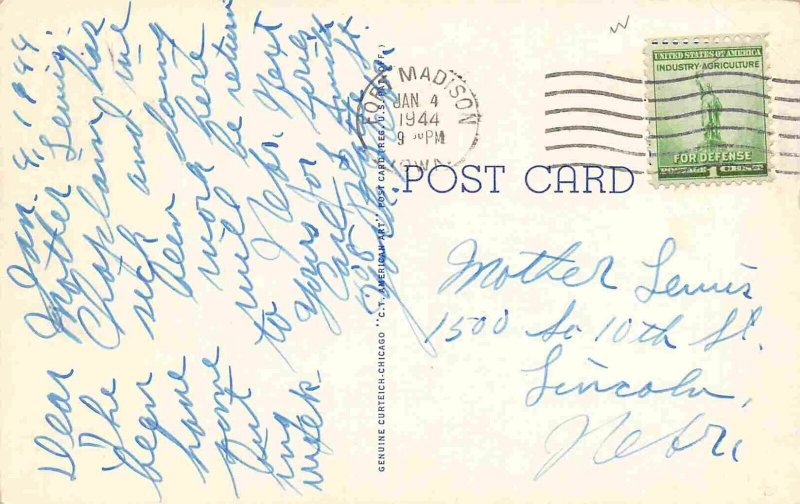 Jan. 4, 1944
Dear Mother Lewis:
The Chaplain has
been sick and
have been doing
some work here
but will be return
ing to Nebr. next
week. Yours for
Carl Smith
GENUINE CURTEICH-CHICAGO "C.T. AMERICAN ART" POST CARD (REG. U.S. PAT. OFF.)
FORT MADISON
JAN 4
1944
9 PM
IOWA
UNITED STATES OF AMERICA
INDUSTRY-AGRICULTURE
FOR DEFENSE
POSTAGE 1 CENT
POST CARD
Mother Lewis
1500 So 10th St.
Lincoln,
Nebr.